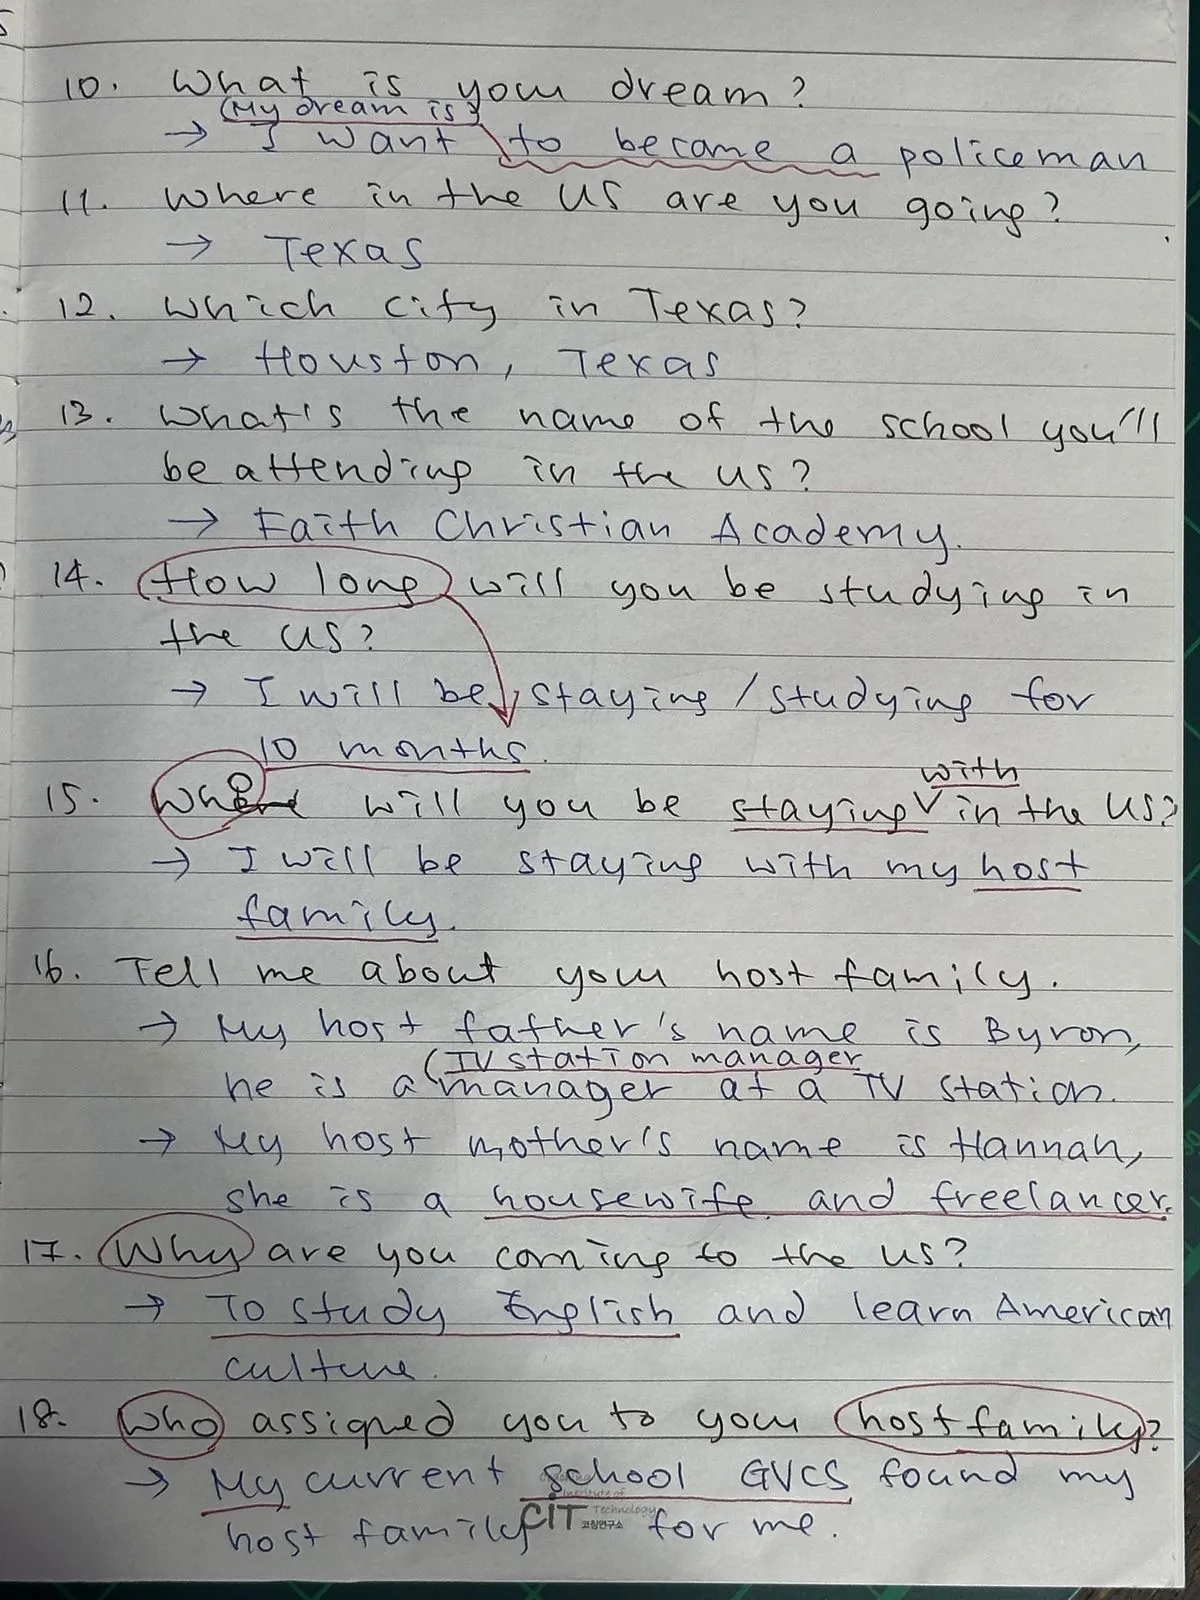 10. What is your dream?
(My dream is)
→ I want to become a policeman
11. Where in the US are you going?
→ Texas
12. Which city in Texas?
→ Houston, Texas
13. What's the name of the school you'll
be attending in the US?
→ Faith Christian Academy.
14. How long will you be studying in
the US?
→ I will be staying / studying for
10 months.
with
15. Who will you be staying in the US?
→ I will be staying with my host
family.
16. Tell me about your host family.
→ My host father's name is Byron,
(TV station manager
he is a manager at a TV station.
→ My host mother's name is Hannah,
she is a housewife and freelancer.
17. Why are you coming to the US?
→ To study English and learn American
culture.
18. Who assigned you to your host family?
→ My current school GVCS found my
host family for me.
Institute of
Technology
CIT 코칭연구소